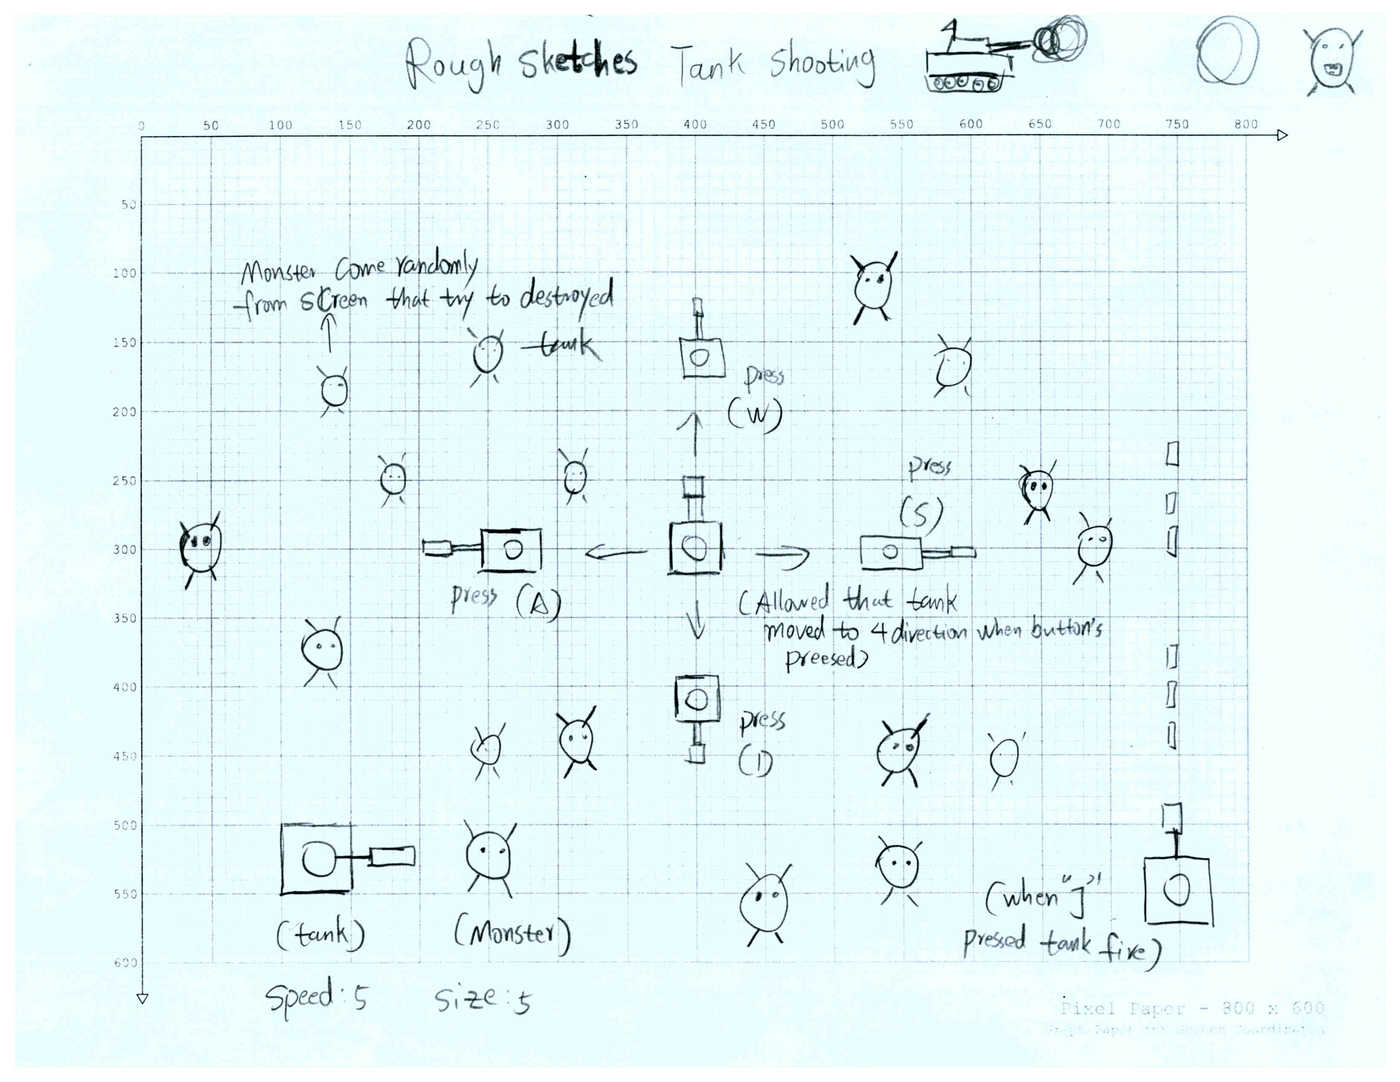 Rough Sketches Tank Shooting
0 50 100 150 200 250 300 350 400 450 500 550 600 650 700 750 800
50
100
150
200
250
300
350
400
450
500
550
600
Monster Come randomly
from SCreen that try to destroyed
tank
press
(W)
press
(S)
press (A)
(Allowed that tank
moved to 4 direction when button's
preesed)
press
(D)
(tank)
(Monster)
(when "J"
pressed tank fire)
Speed: 5 Size: 5
Pixel Paper - 800 x 600